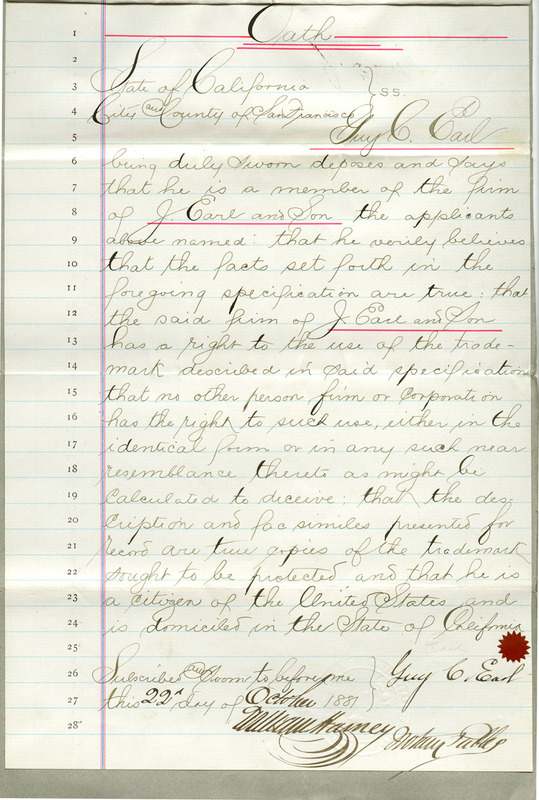 1 Oath
2
3 State of California } ss.
4 City and County of San Francisco
5 Guy C. Earl
6 being duly sworn deposes and says
7 that he is a member of the firm
8 of J. Earl and Son the applicants
9 above named: that he verily believes
10 that the facts set forth in the
11 foregoing specification are true: that
12 the said firm of J. Earl and Son
13 has a right to the use of the trade-
14 mark described in said specification
15 that no other person firm or corporation
16 has the right to such use, either in the
17 identical form or in any such near
18 resemblance thereto as might be
19 calculated to deceive: that the des-
20 cription and fac similes presented for
21 record are true copies of the trademark
22 sought to be protected and that he is
23 a citizen of the United States and
24 is domiciled in the State of California
25
26 Subscribed and Sworn to before me } Guy C. Earl
27 this 22d day of October 1881
28 William Harney Notary Public